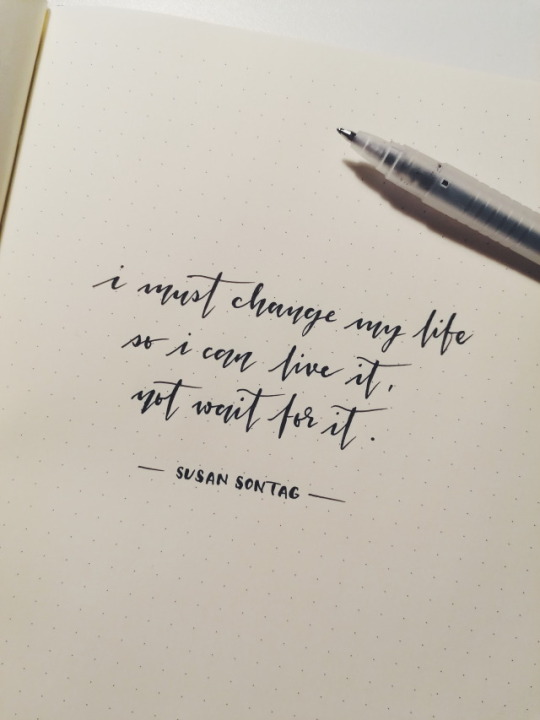 i must change my life
so i can live it,
not wait for it.
— SUSAN SONTAG —